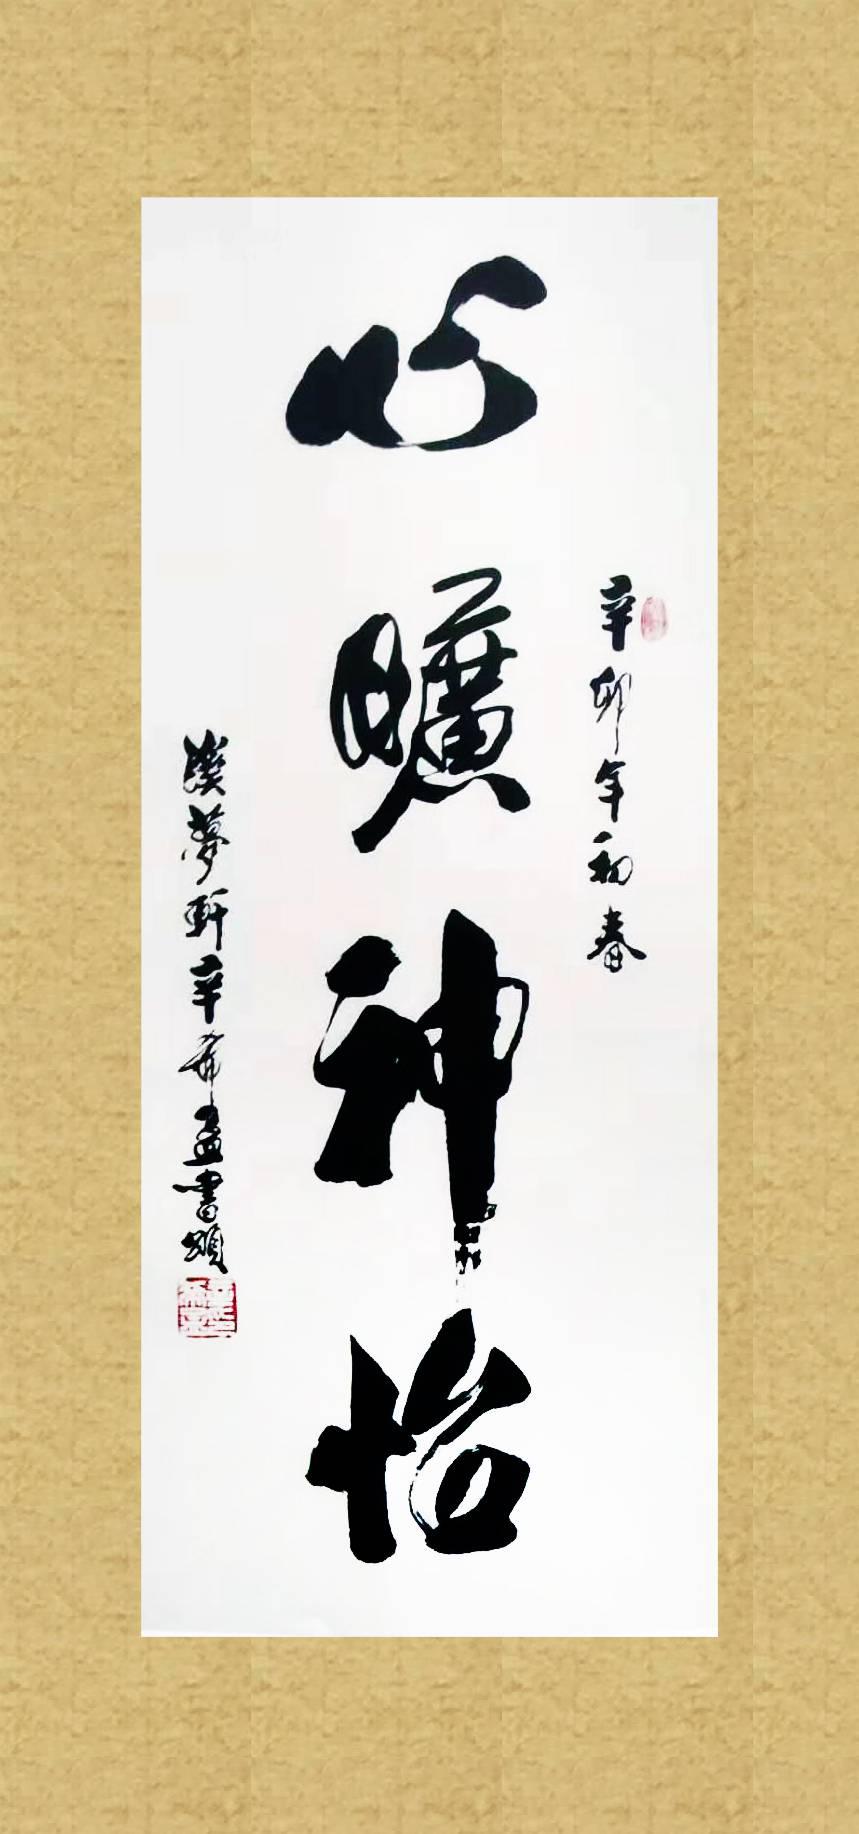 辛卯年初春
心曠神怡
夢軒辛希孟書頌